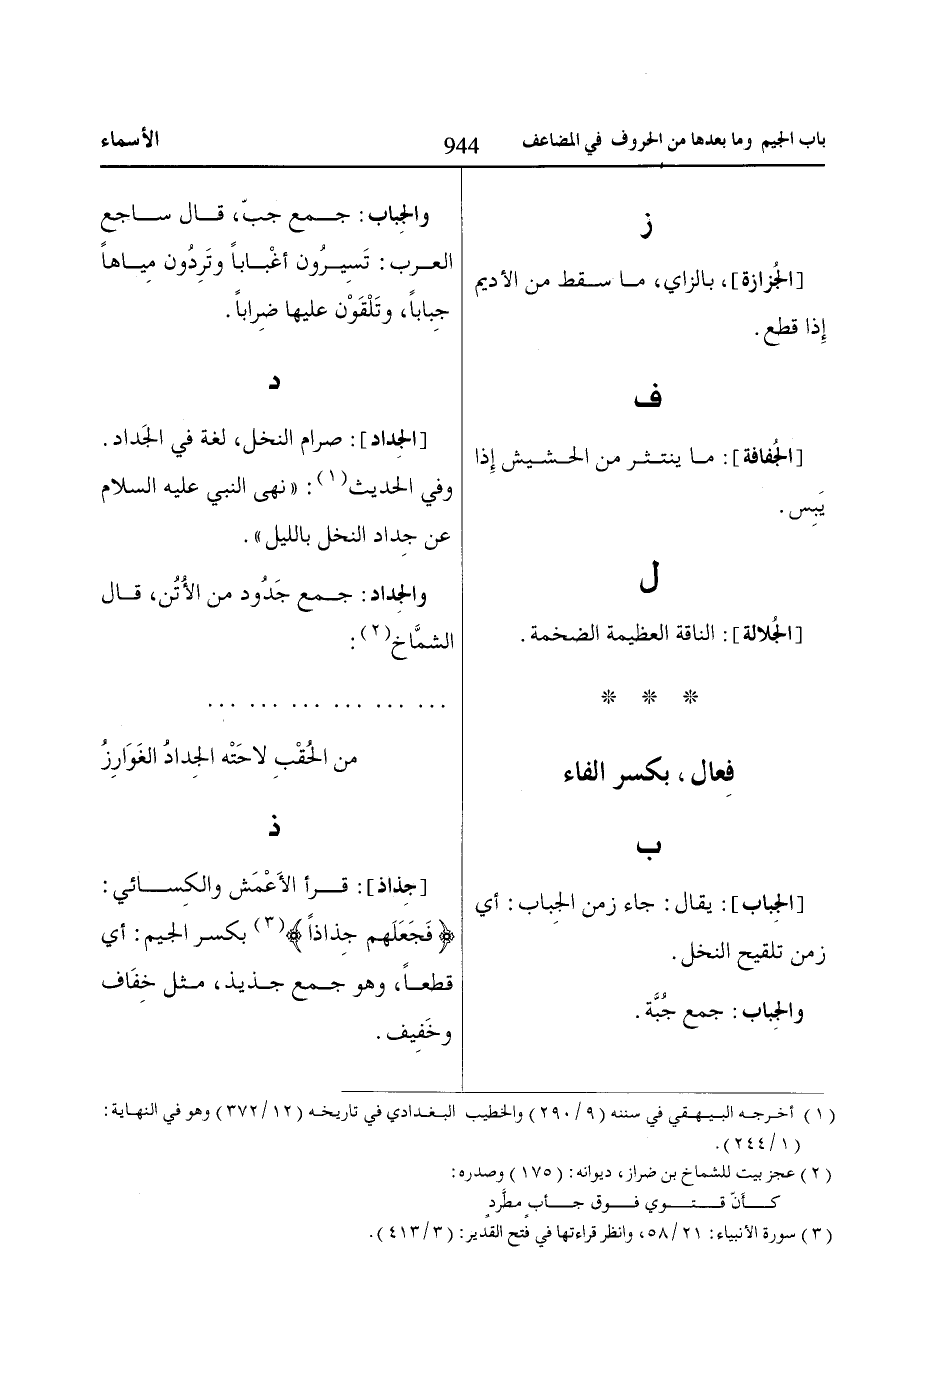 باب الجيم وما بعدها من الحروف في المضاعف 944 الأسماء
ز
[الجُزازة]، بالزاي، مـا سـقط من الأديم
إِذا قطع.
ف
[الجُفافة]: مـا ينتـثـر من الحـشـيش إِذا
يَبِس.
ل
[الجُلالة]: الناقة العظيمة الضخمة.
* * *
فِعال، بكسر الفاء
ب
[الجِباب]: يقال: جاء زمن الجِباب: أي
زمن تلقيح النخل.
والجِباب: جمع جُبَّة.
والجِباب: جـمـع جبّ، قـال سـاجع
العـرب: تَسِيـرُون أغْبـاباً وتَرِدُون مِيـاهاً
جِباباً، وتَلْقَوْن عليها ضِراباً.
د
[الجِداد]: صرام النخل، لغة في الجَداد.
وفي الحديث(١): «نهى النبي عليه السلام
عن جِداد النخل بالليل».
والجِداد: جـمع جَدُود من الأُتُن، قـال
الشمَّاخ(٢):
... ... ... ... ... ...
من الحُقْبِ لاحَتْه الجِدادُ الغَوَارِزُ
ذ
[جِذاذ]: قـرأ الأَعْمَش والكِسـائي:
﴿فَجَعَلَهم جِذاذاً﴾(٣) بكسر الجيم: أي
قطعـاً، وهو جـمع جـذيذ، مـثل خِفَاف
وخَفِيف.
(١) أخرجه البيهقي في سننه (٢٩٠/٩) والخطيب البغدادي في تاريخه (٣٧٢/١٢) وهو في النهاية:
(٢٤٤/١).
(٢) عجز بيت للشماخ بن ضرار، ديوانه: (١٧٥) وصدره:
كـأنّ قـتـوي فـوق جـأبٍ مطَّردٍ
(٣) سورة الأنبياء: ٥٨/٢١، وانظر قراءتها في فتح القدير: (٤١٣/٣).